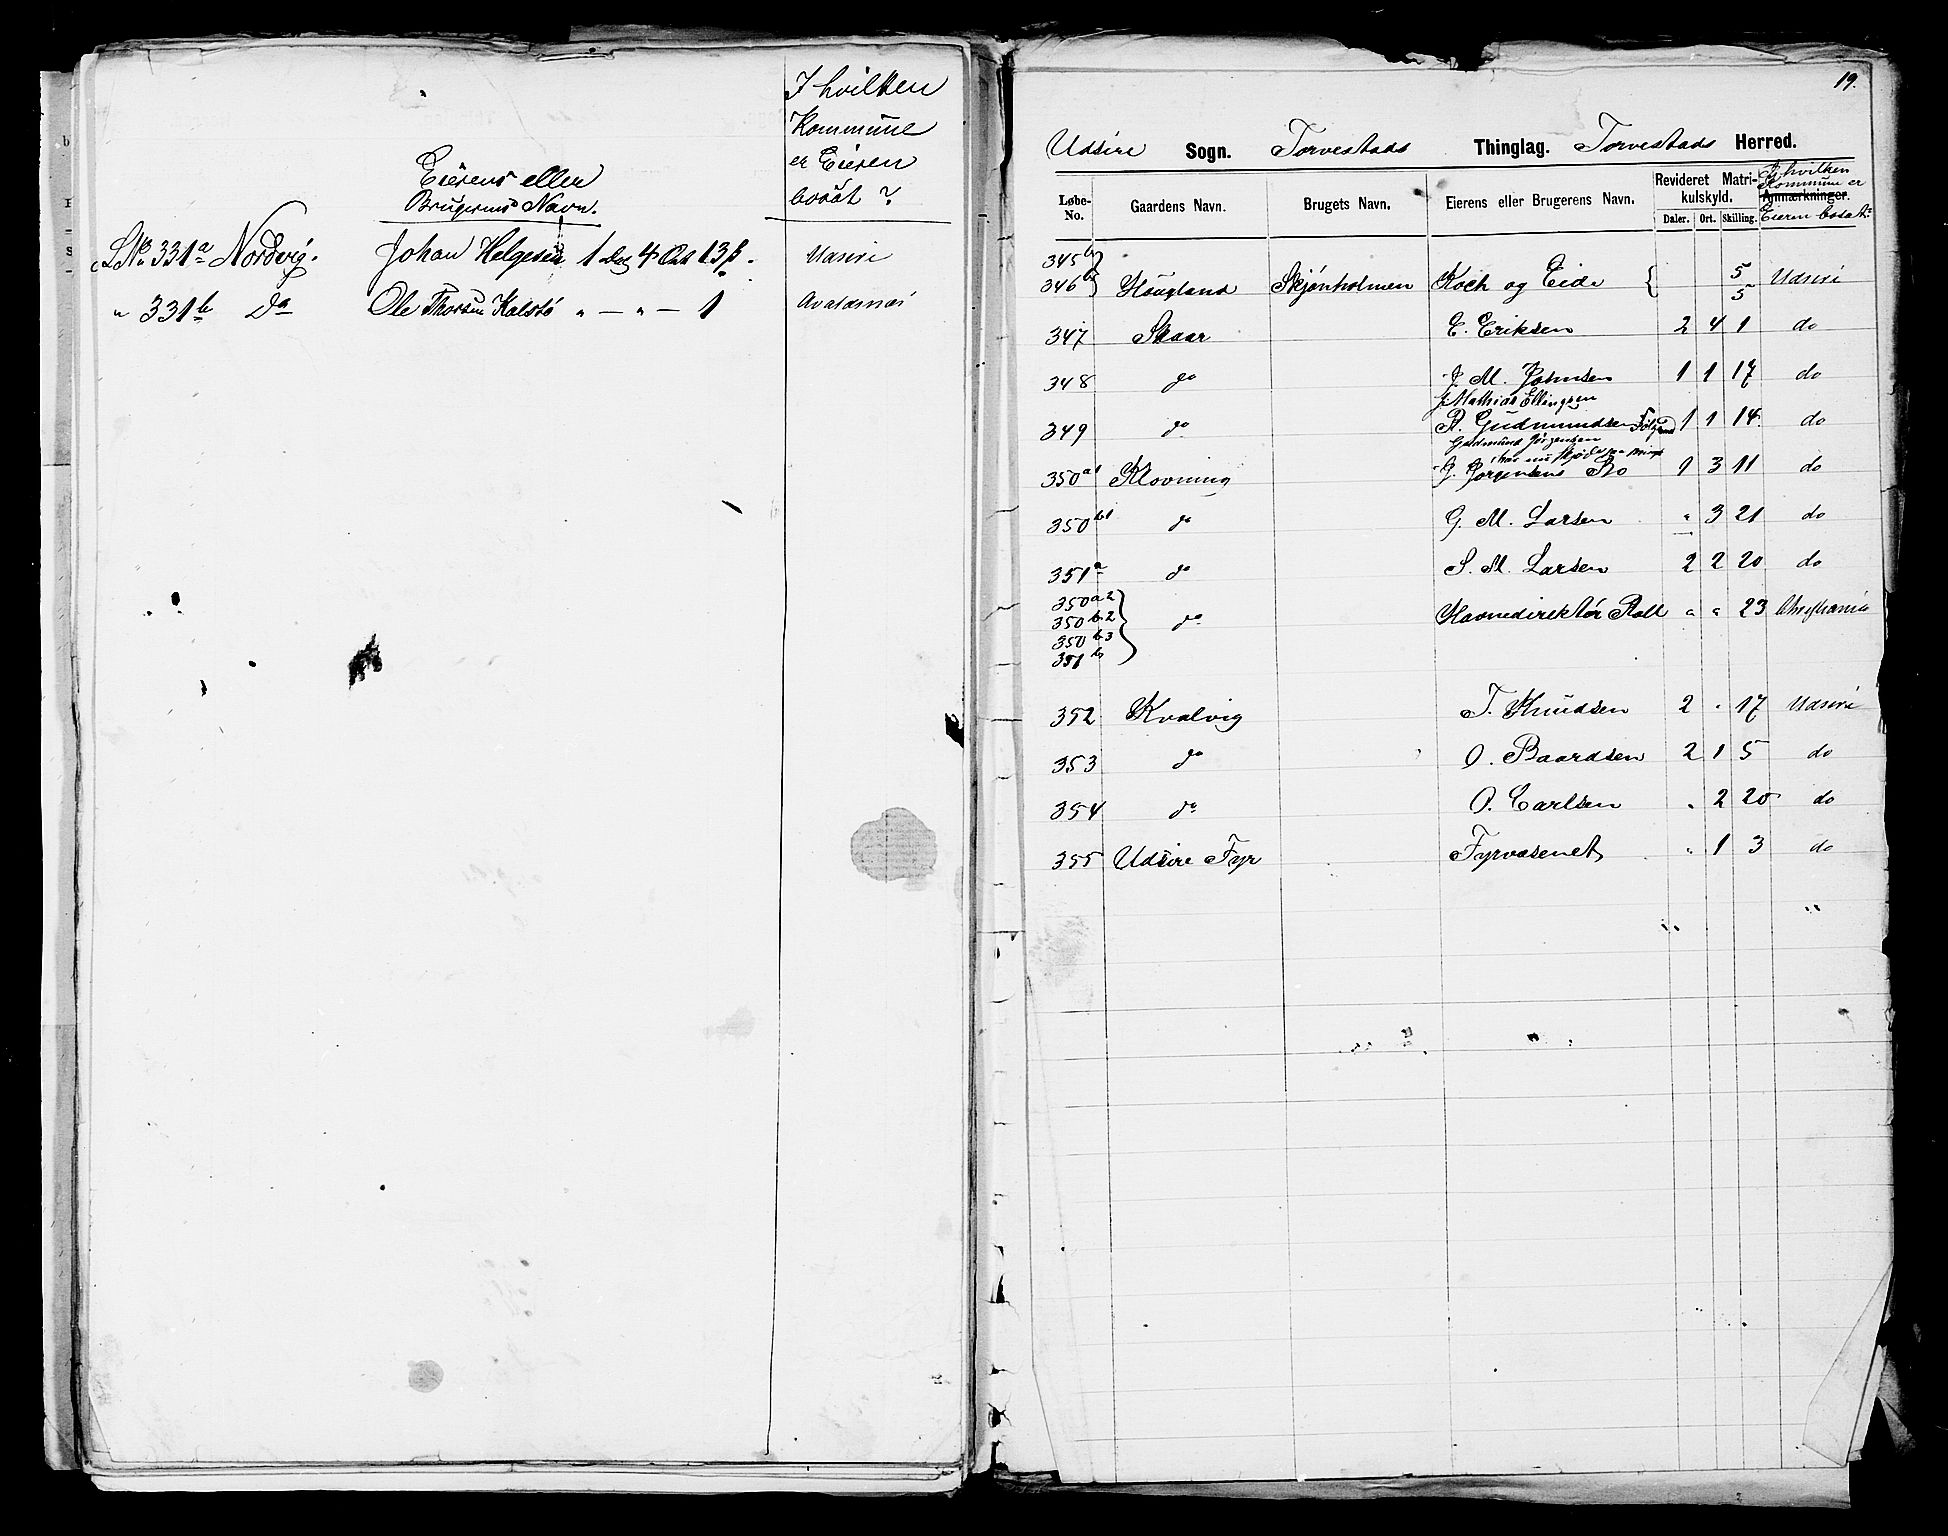 I hvilken
Kommune
er Eieren
bosat?
Eierens eller
Brugerens Navn.
LNo 331a Nordvig. Johan Helgesen 1 Dlr 4 Ort 13 ß. Udsire
" 331b Do Ole Thorsen Kalstö " — " — 1 Avaldsnæs
19.
Udsire Sogn. Torvestads Thinglag. Torvestads Herred.
Løbe-No. Gaardens Navn. Brugets Navn. Eierens eller Brugerens Navn. Revideret Matrikulskyld. Daler. Ort. Skilling. Anmærkninger. I hvilken Kommune er Eieren bosat?
345b
346b } Hougland Skjønholmen Koch og Eide { 5 5 Udsire
347 Skaar E. Eriksen 2 4 1 do
348 do J. M. Johnsen 1 1 17 do
J. Mathias Ellingsen
349 do R. Gudmundsen 1 1 14 do
Gudmund Jørgensen
har nu Skjøde
350a1 Klovning J. Jørgensens Bo 1 3 11 do
350b1 do G. M. Larsen " 3 21 do
351a do S. M. Larsen 2 2 20 do
350a2
350b2
350b3
351b } do Havnedirektør Roll " " 23 Christiania
352 Kvalvig T. Knudsen 2 " 17 Udsire
353 do O. Baardsen 2 1 5 do
354 do O. Carlsen " 2 20 do
355 Udsire Fyr Fyrvæsenet " 1 3 do